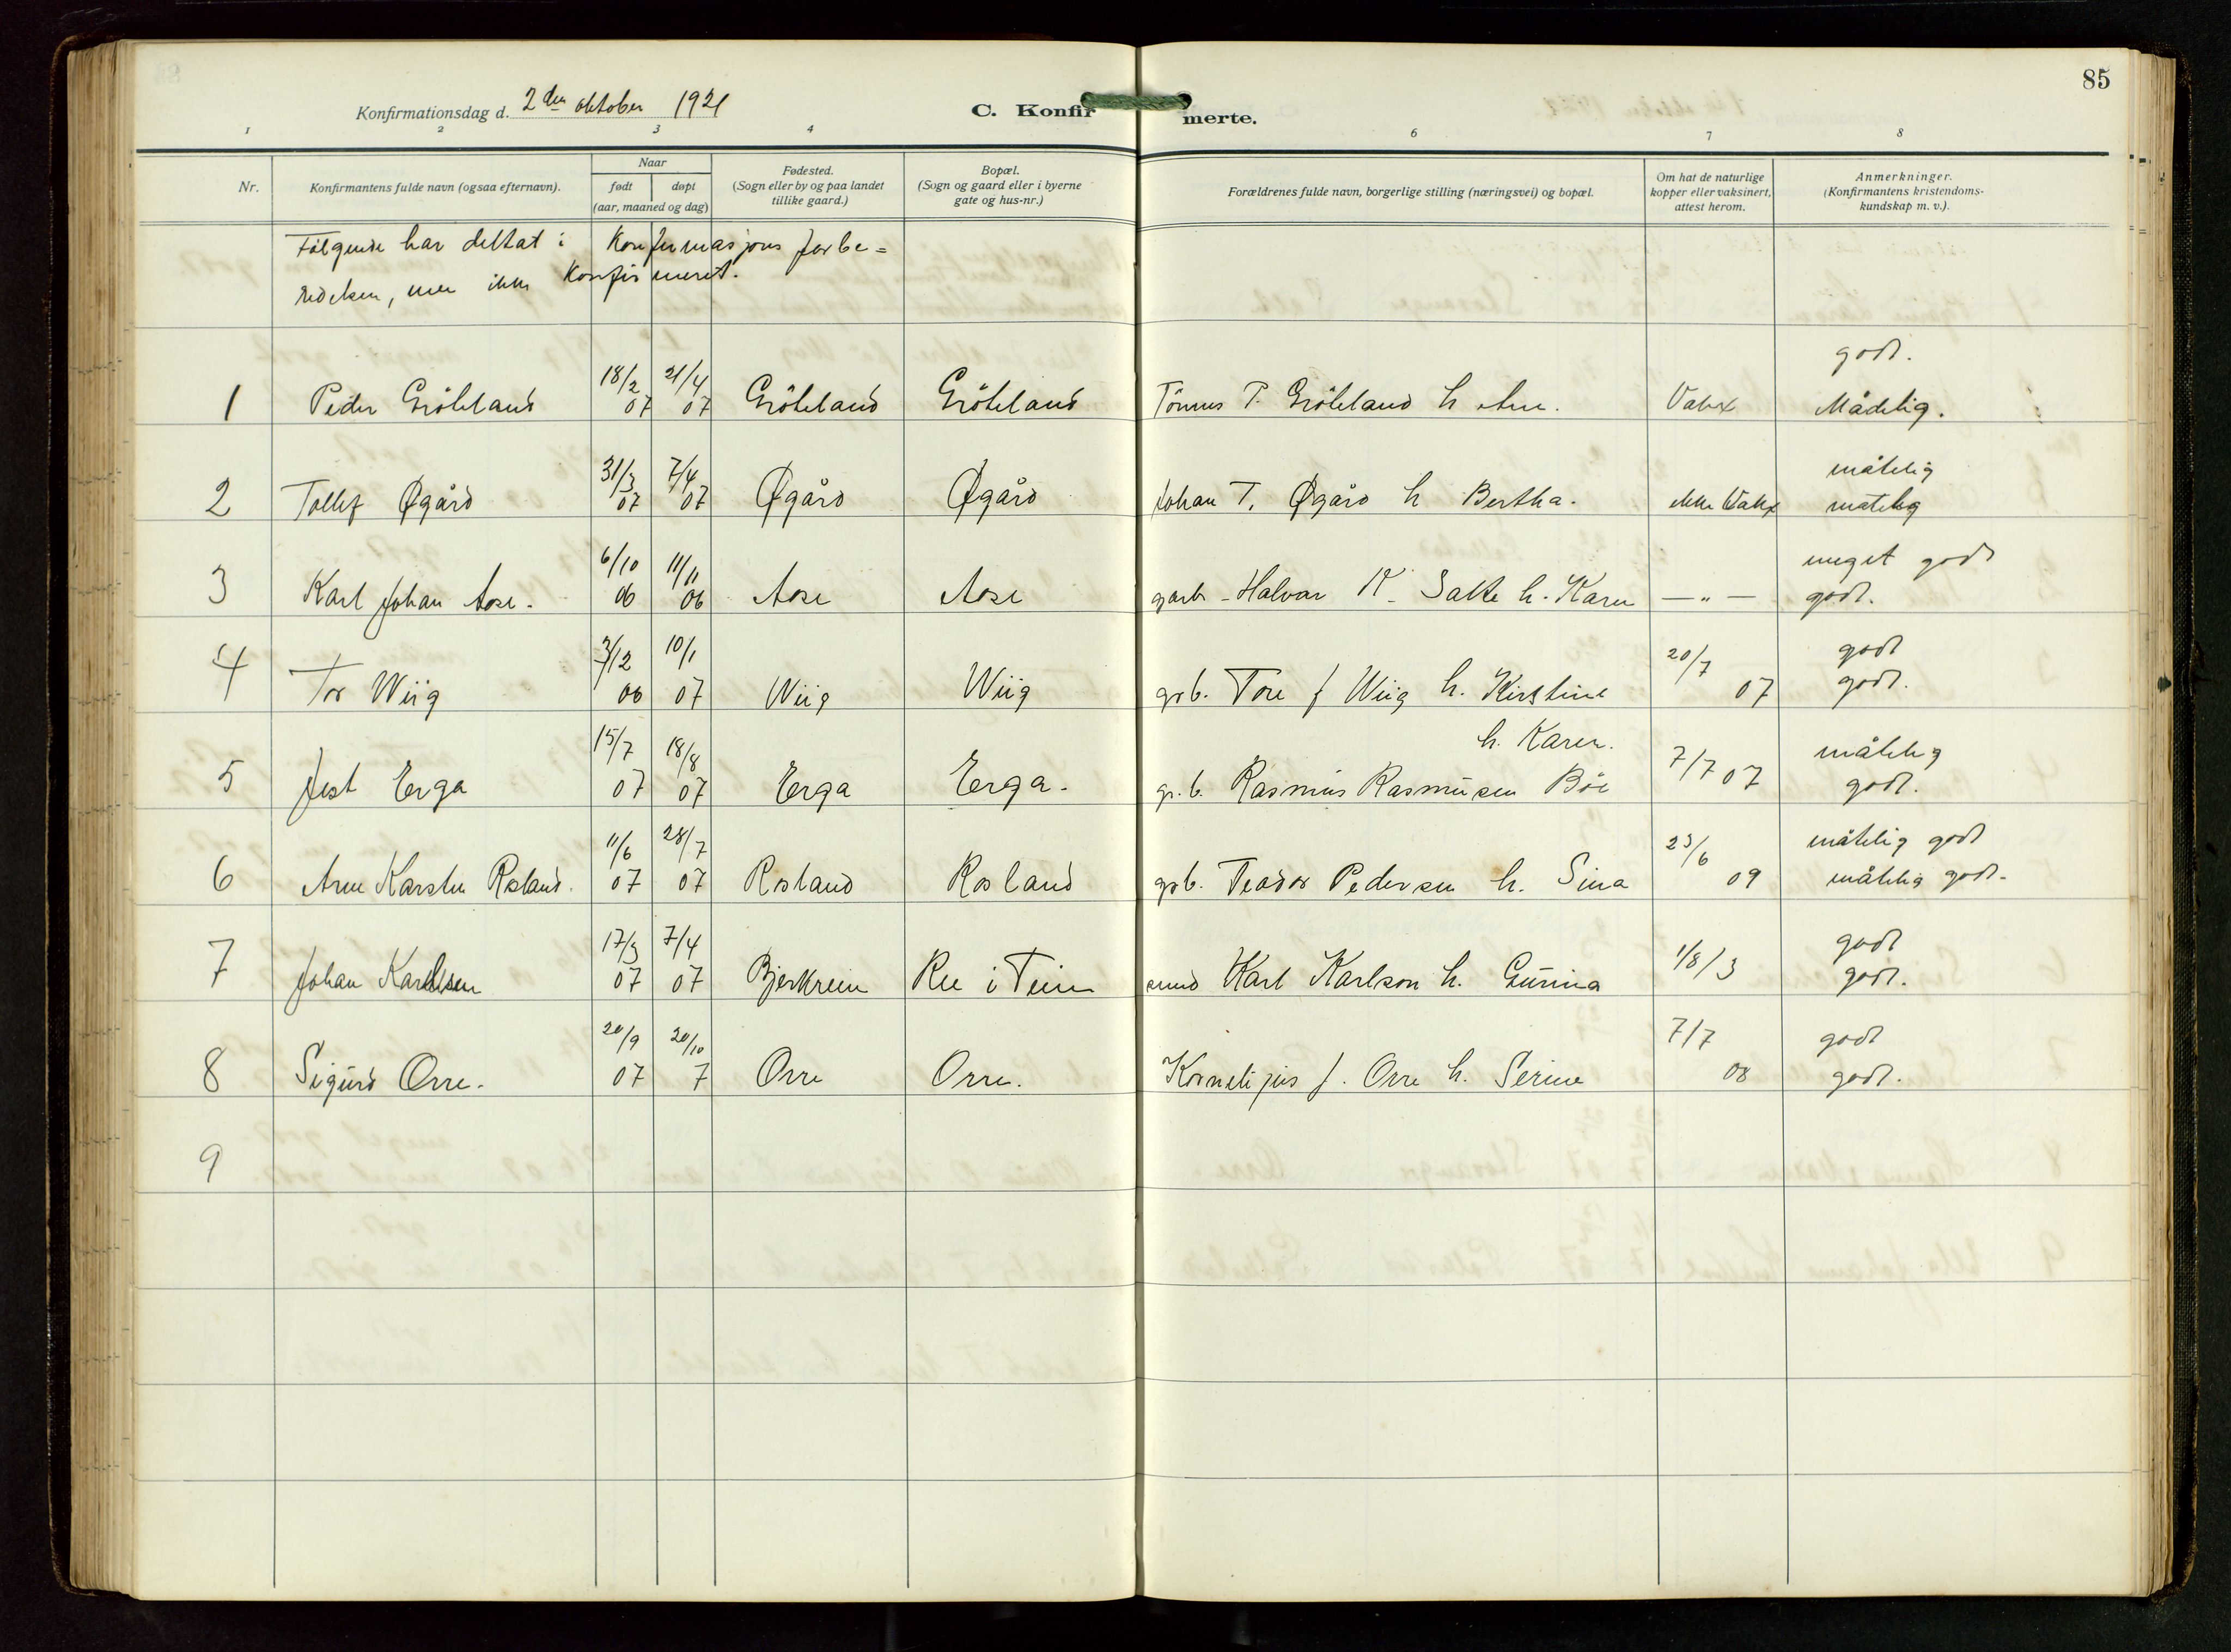 85
Konfirmationsdag d. 2den oktober 1921
C. Konfirmerte.
1 2 3 4 6 7 8
Nr. Konfirmantens fulde navn (ogsaa efternavn). Naar født døpt (aar, maaned og dag) Fødested. (Sogn eller by og paa landet tillike gaard.) Bopæl. (Sogn og gaard eller i byerne gate og hus-nr.) Forældrenes fulde navn, borgerlige stilling (næringsvei) og bopæl. Om hat de naturlige kopper eller vaksinert, attest herom. Anmerkninger. (Konfirmantens kristendoms-kundskap m. v.).
Følgende har deltat i Konfirmasjons forbe=
redelsen, men ikke Konfirmeret.
1 Peder Gröteland 18/2 07 21/4 07 Gröteland Gröteland Tönnes T. Gröteland h Ane. Vakx godt. Mådelig.
2 Tollef Øgård 31/3 07 7/4 07 Øgård Øgård Johan T. Øgård h Bertha. ikke Vakx måtelig måtelig
3 Karl Johan Aase. 6/10 06 11/11 06 Aase Aase garb. Halvar K. Salte h. Karen — " — meget godt godt.
4 Tor Wiig 3/12 06 10/1 07 Wiig Wiig grb. Tore J Wiig h. Kirstine 20/7 07 godt godt.
5 Jest Erga 15/7 07 18/8 07 Erga Erga. gr.b. Rasmus Rasmusen Böe h. Karen. 7/7 07 måtelig godt.
6 Arne Karsten Rosland. 11/6 07 28/7 07 Rosland Rosland grb. Teodor Pedersen h. Sina 23/6 09 måtelig godt måtelig godt.
7 Johan Karlsen 17/3 07 7/4 07 Bjerkreim Ree i Teim smed Karl Karlson h. Gurina 1/8/3 godt godt.
8 Sigurd Orre. 20/9 07 20/10 7 Orre Orre. Kornelijus J. Orre h. Serine 7/7 08 godt godt.
9